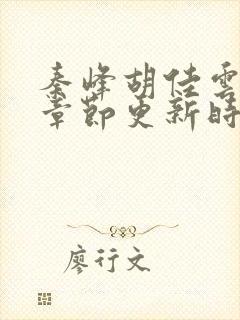 秦峰胡佳雲
章節更新時
廖行文